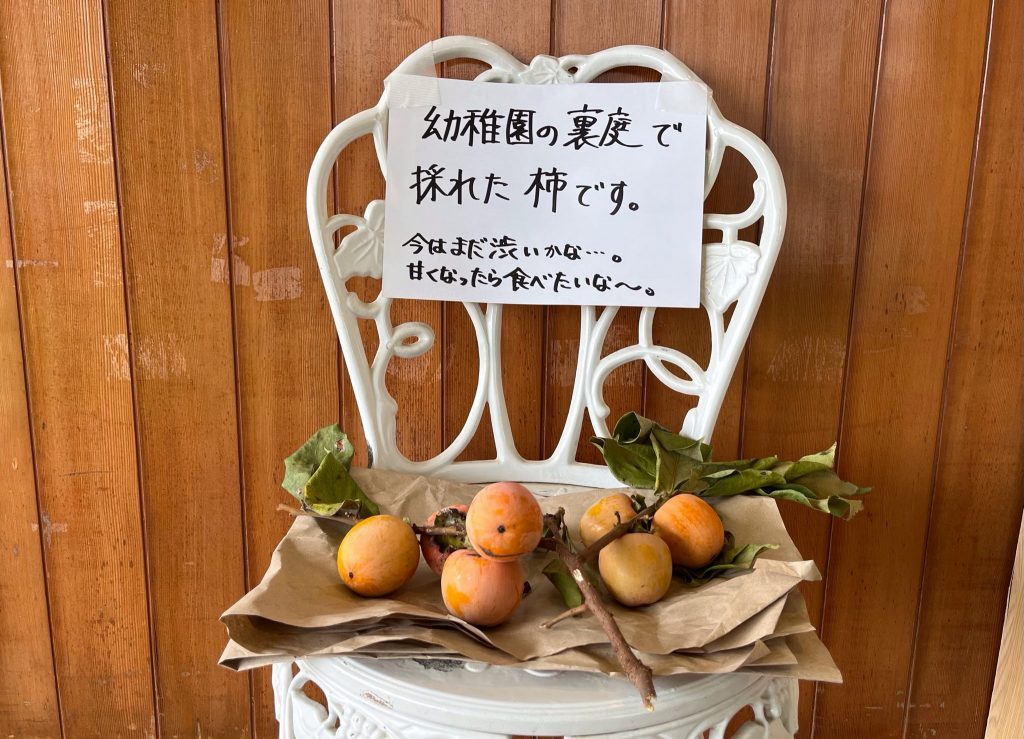 幼稚園の裏庭で
採れた柿です。
今はまだ渋いかな…。
甘くなったら食べたいな〜。